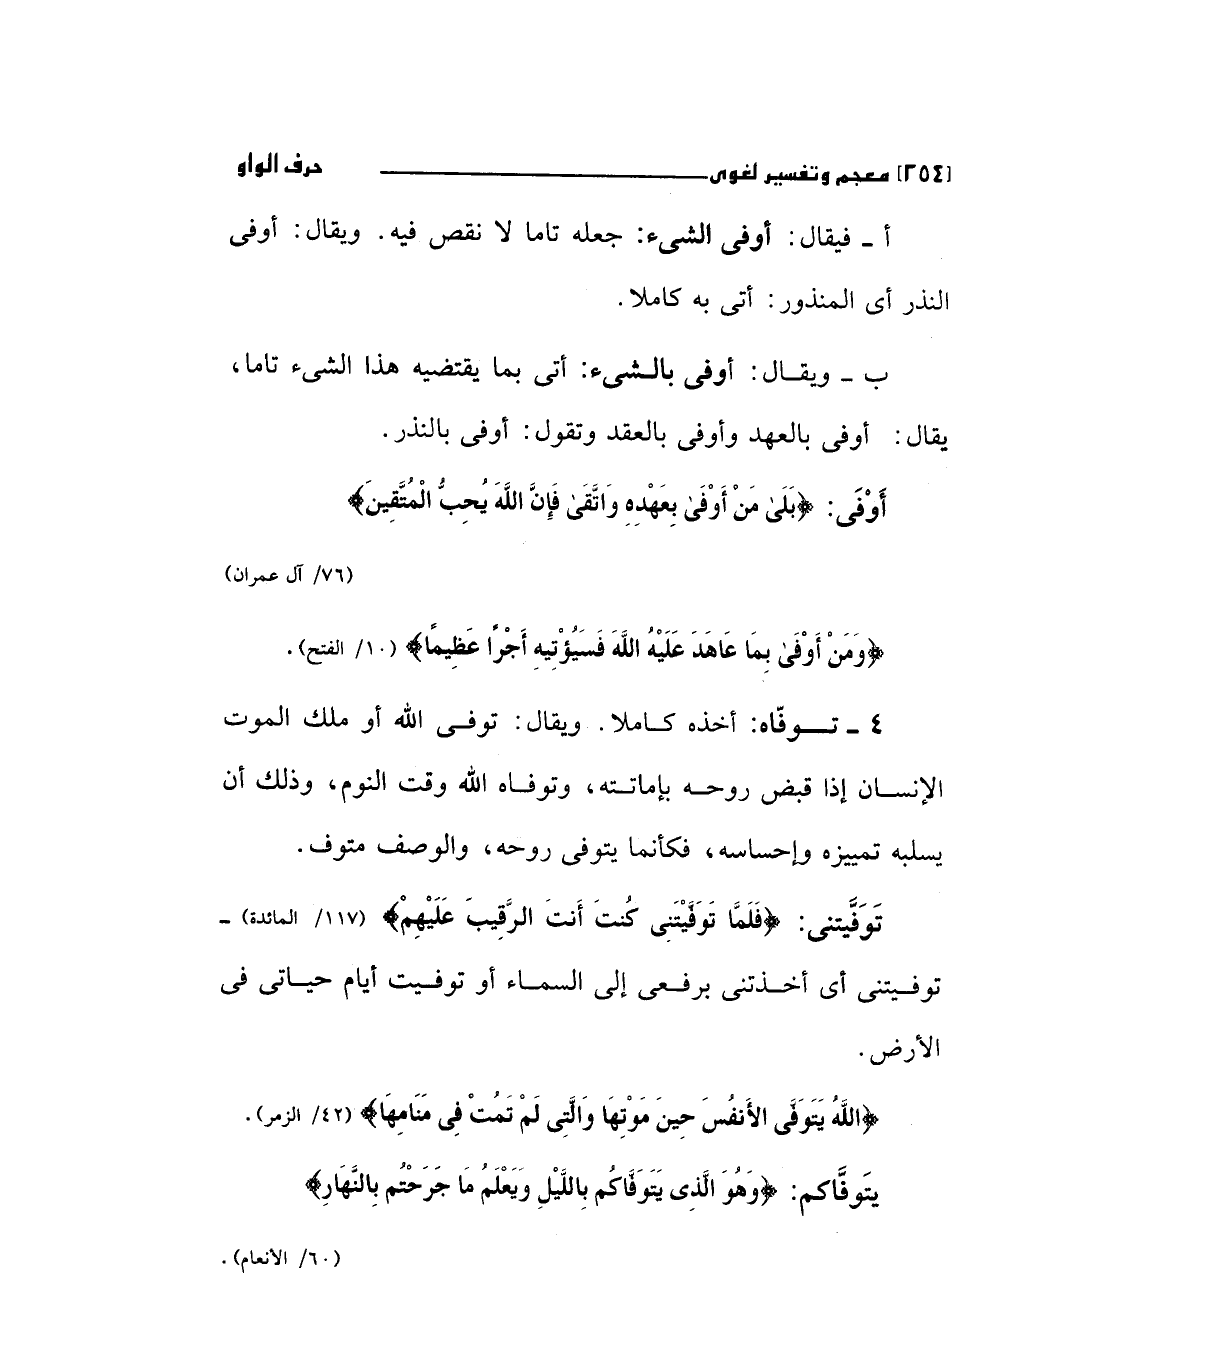 [٢٥٤] معجم وتفسير لغوى حرف الواو
أ ـ فيقال: أوفى الشىء: جعله تاما لا نقص فيه. ويقال: أوفى
النذر أى المنذور: أتى به كاملا.
ب ـ ويقـال: أوفى بالـشىء: أتى بما يقتضيه هذا الشىء تاما،
يقال: أوفى بالعهد وأوفى بالعقد وتقول: أوفى بالنذر.
أَوْفَى: ﴿بَلَىٰ مَنْ أَوْفَىٰ بِعَهْدِهِ وَاتَّقَىٰ فَإِنَّ اللَّهَ يُحِبُّ الْمُتَّقِينَ﴾
(٧٦/ آل عمران)
﴿وَمَنْ أَوْفَىٰ بِمَا عَاهَدَ عَلَيْهُ اللَّهَ فَسَيُؤْتِيهِ أَجْرًا عَظِيمًا﴾ (١٠/ الفتح).
٤ ـ تـــوفّاه: أخذه كـاملا. ويقال: توفـى الله أو ملك الموت
الإنسـان إذا قبض روحـه بإماتـته، وتوفـاه الله وقت النوم، وذلك أن
يسلبه تمييزه وإحساسه، فكأنما يتوفى روحه، والوصف متوف.
تَوَفَّيتنى: ﴿فَلَمَّا تَوَفَّيْتَنِى كُنتَ أَنتَ الرَّقِيبَ عَلَيْهِمْ﴾ (١١٧/ المائدة) ـ
توفـيتنى أى أخـذتنى برفـعى إلى السمـاء أو توفـيت أيام حيـاتى فى
الأرض.
﴿اللَّهُ يَتَوَفَّى الأَنفُسَ حِينَ مَوْتِهَا وَالَّتِى لَمْ تَمُتْ فِى مَنَامِهَا﴾ (٤٢/ الزمر).
يتَوفَّاكم: ﴿وَهُوَ الَّذِى يَتَوَفَّاكُم بِاللَّيْلِ وَيَعْلَمُ مَا جَرَحْتُم بِالنَّهَارِ﴾
(٦٠/ الأنعام).